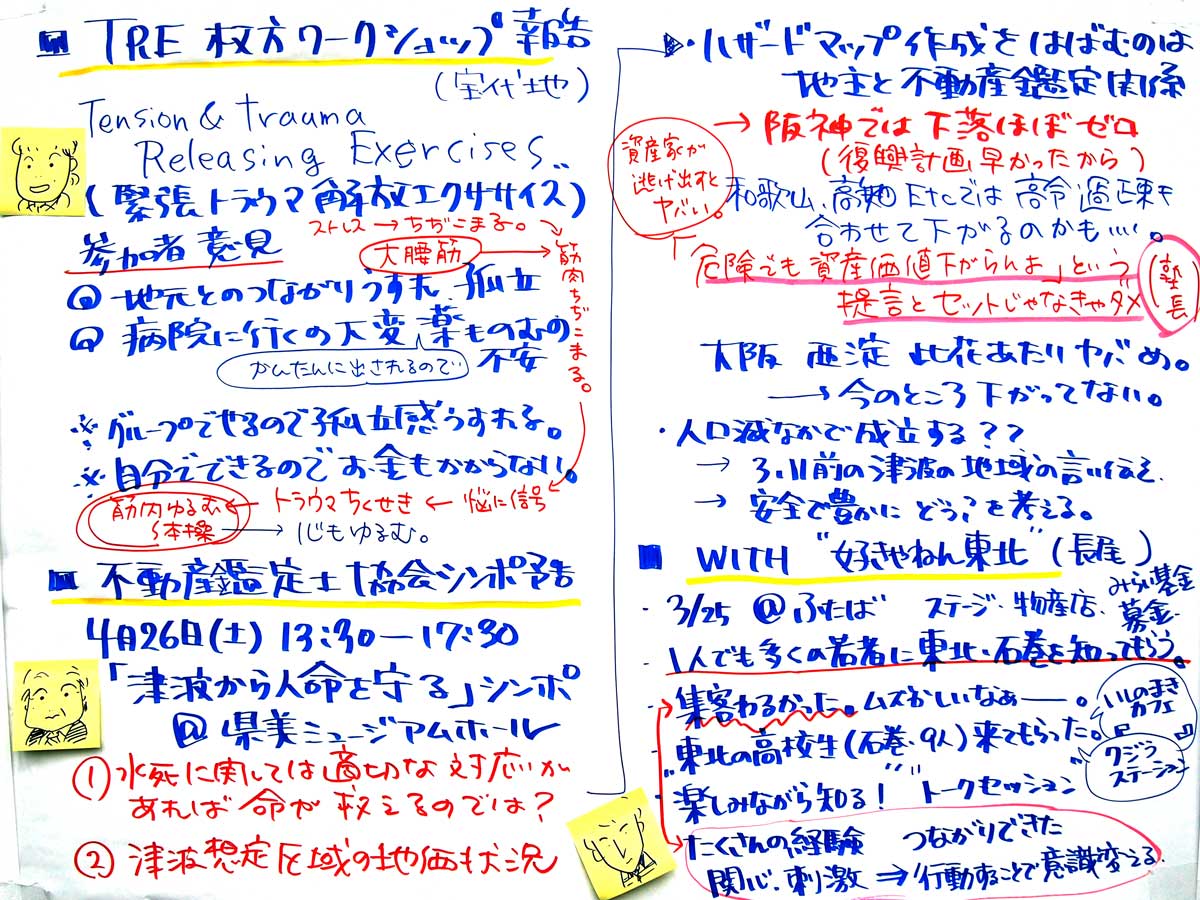 ■ TRE 枚方ワークショップ報告
(室代地)
Tension & trauma
Releasing Exercises..
(緊張トラウマ解放エクササイズ)
参加者意見
ストレス→ちぢこまる。
大腰筋→筋肉ちぢこまる。
◎ 地元とのつながりうすれ、孤立
◎ 病院に行くの大変、薬ものむの不安
かんたんに出されるので
※グループでやるので孤立感うすれる。
※自分でできるのでお金もかからない。
筋肉ゆるむ体操 ← トラウマちくせき ← 悩に信号
→ 心もゆるむ。
■ 不動産鑑定士協会シンポ予告
4月26日(土) 13:30ー17:30
「津波から人命を守る」シンポ
@県美ミュージアムホール
① 水死に関しては適切な対応が
あれば命が救えるのでは?
② 津波想定区域の地価も状況
・ハザードマップ作成をはばむのは
地主と不動産鑑定関係
→ 阪神では下落ほぼゼロ
(復興計画早かったから)
資産家が
逃げ出すと
ヤバい。
和歌山、高知Etcでは高令過疎も
合わせて下がるのかも….。
「危険でも資産価値下がらんよ」という
提言とセットじゃなきゃダメ
(塾長)
大阪 西淀 此花あたりヤバめ。
→今のところ下がってない。
・人口減なかで成立する??
→ 3.11前の津波の地域の言い伝え
→ 安全で豊かにどう?を考える。
■ WITH "好きやねん東北"(長尾)
・3/25 @ふたば ステージ・物産店・みらい基金募金・
・1人でも多くの若者に東北・石巻を知ってもらう。
・集客わるかった。ムズかしいなぁー。
いしのまき
カフェ
「 」
・東北の高校生(石巻・9人)来てもらった。
クジラ
ステーション
・"楽しみながら知る!" "トークセッション"
たくさんの経験 つながりできた
関心、刺激 ⇒行動することで意識変える.